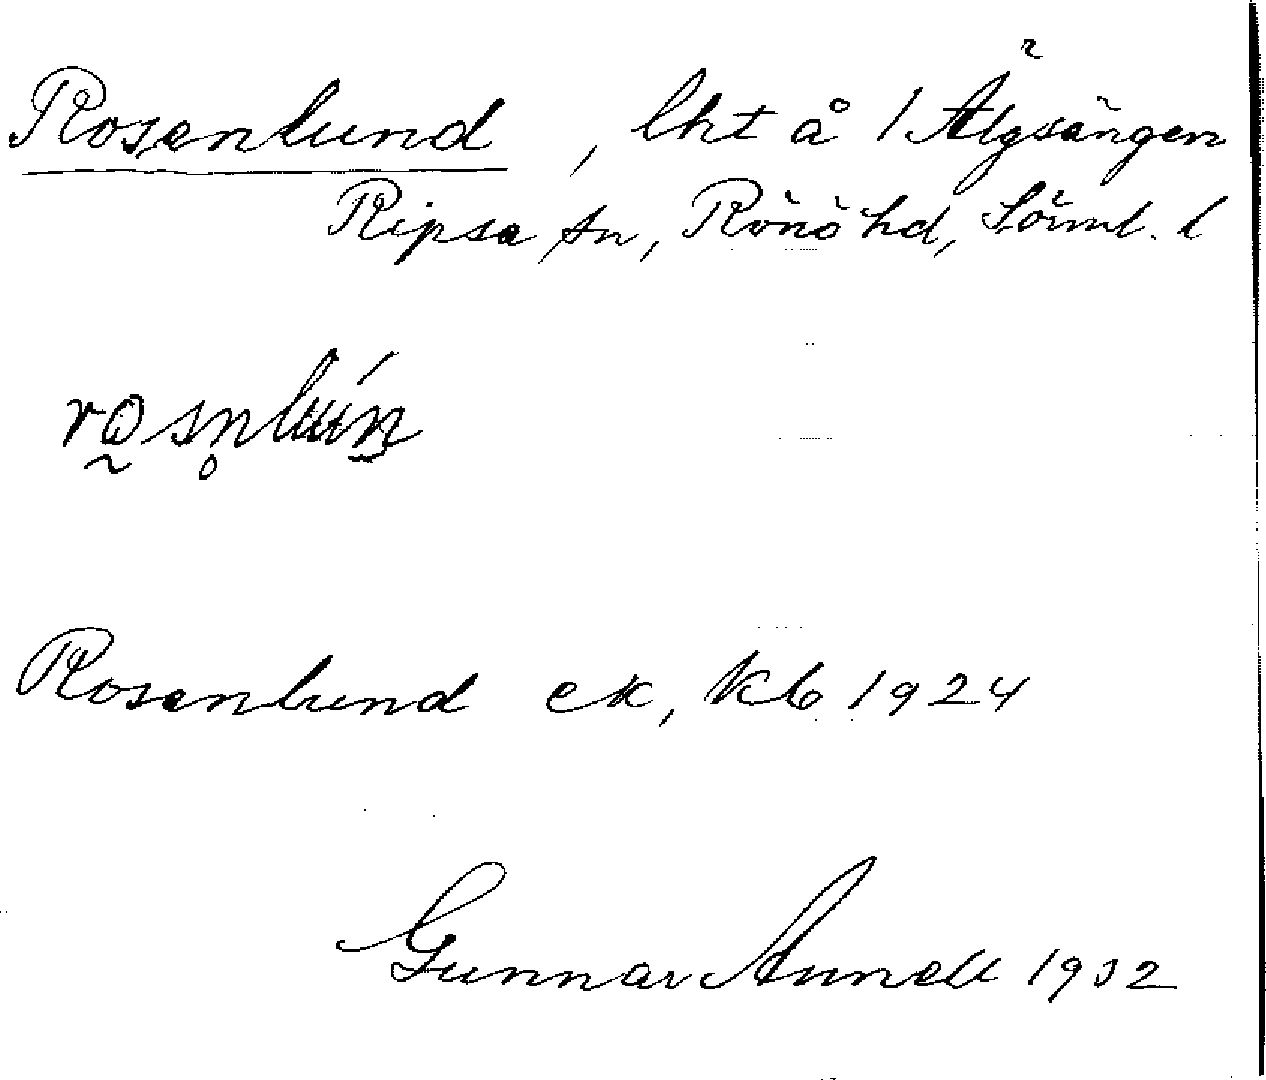 Rosenlund, lht å 1 Älgsängen
Ripsa sn, Rönö hd, Sörml. l
Rosenlund ek, kb 1924
Gunnar Annell 1932